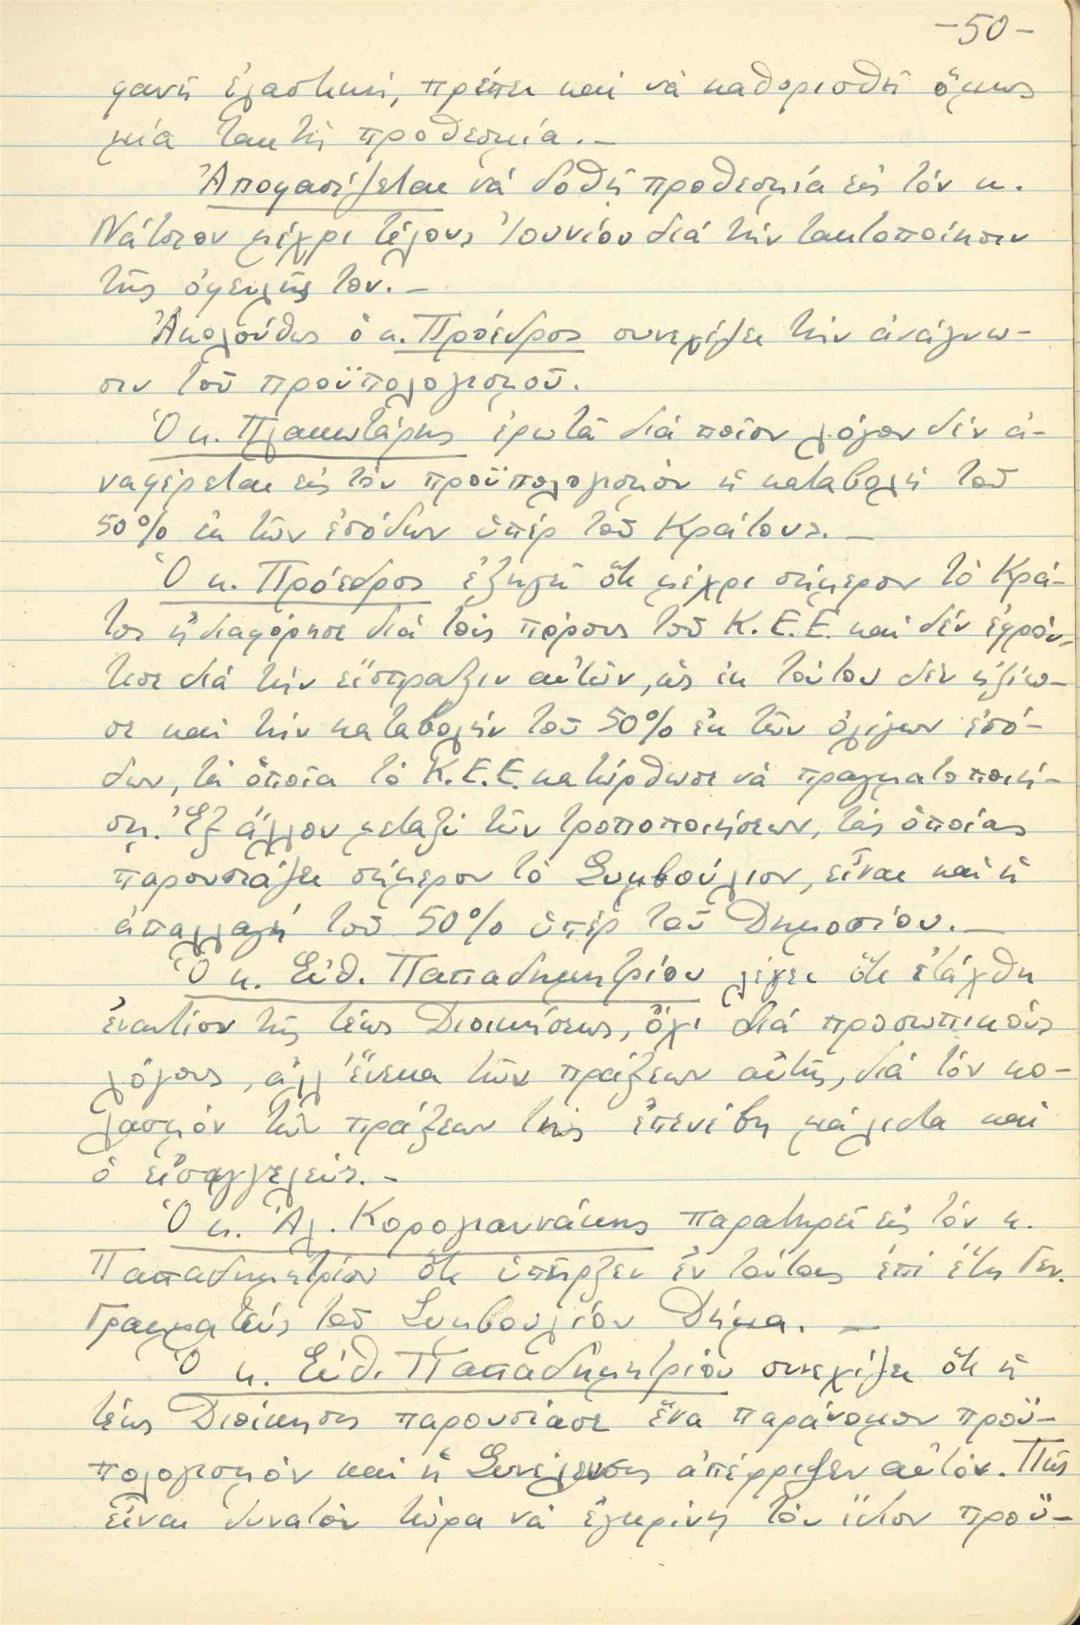 -50-
φανῇ ἐλαστική, πρέπει καί νά καθορισθῇ ὅμως
μία τακτή προθεσμία.-
Ἀποφασίζεται νά δοθῇ προθεσμία εἰς τόν κ.
Νάτσιον μέχρι τέλους Ἰουνίου διά τήν τακτοποίησιν
τῆς ὀφειλῆς του.-
Ἀκολούθως ὁ κ. Πρόεδρος συνεχίζει τήν ἀνάγνω-
σιν τοῦ προϋπολογισμοῦ.
Ὁ κ. Πλακωτάρης ἐρωτᾶ διά ποῖον λόγον δέν ἀ-
ναφέρεται εἰς τόν προϋπολογισμόν ἡ καταβολή τοῦ
50% ἐκ τῶν ἐσόδων ὑπέρ τοῦ Κράτους.-
Ὁ κ. Πρόεδρος ἐξηγεῖ ὅτι μέχρι σήμερον τό Κρά-
τος ἠδιαφόρησε διά τούς πόρους τοῦ Κ.Ε.Ε. καί δέν ἐφρόν-
τισε διά τήν εἴσπραξιν αὐτῶν, ὡς ἐκ τούτου δέν ἠξίω-
σε καί τήν καταβολήν τοῦ 50% ἐκ τῶν ὀλίγων ἐσό-
δων, τά ὁποῖα τό Κ.Ε.Ε. κατώρθωσε νά πραγματοποιή-
σῃ. Ἐξ ἄλλου μεταξύ τῶν τροποποιήσεων, τάς ὁποίας
παρουσιάζει σήμερον τό Συμβούλιον, εἶναι καί ἡ
ἀπαλλαγή τοῦ 50% ὑπέρ τοῦ Δημοσίου.-
Ὁ κ. Εὐθ. Παπαδημητρίου λέγει ὅτι ἐτάχθη
ἐναντίον τῆς τέως Διοικήσεως, ὄχι διά προσωπικούς
λόγους, ἀλλ' ἕνεκα τῶν πράξεων αὐτῆς, διά τόν κο-
λασμόν τῶν πράξεων της ἐπενέβη μάλιστα καί
ὁ εἰσαγγελεύς.-
Ὁ κ. Ἀλ. Κορογιαννάκης παρατηρεῖ εἰς τόν κ.
Παπαδημητρίου ὅτι ὑπῆρξεν ἐν τούτοις ἐπί ἔτη Γεν.
Γραμματεύς τοῦ Συμβουλίου Δήμα.-
Ὁ κ. Εὐθ. Παπαδημητρίου συνεχίζει ὅτι ἡ
τέως Διοίκησις παρουσίασε ἕνα παράνομον προϋ-
πολογισμόν καί ἡ Συνέλευσις ἀπέρριψεν αὐτόν. Πῶς
εἶναι δυνατόν τώρα νά ἐγκρίνῃ τόν ἴδιον προϋ-